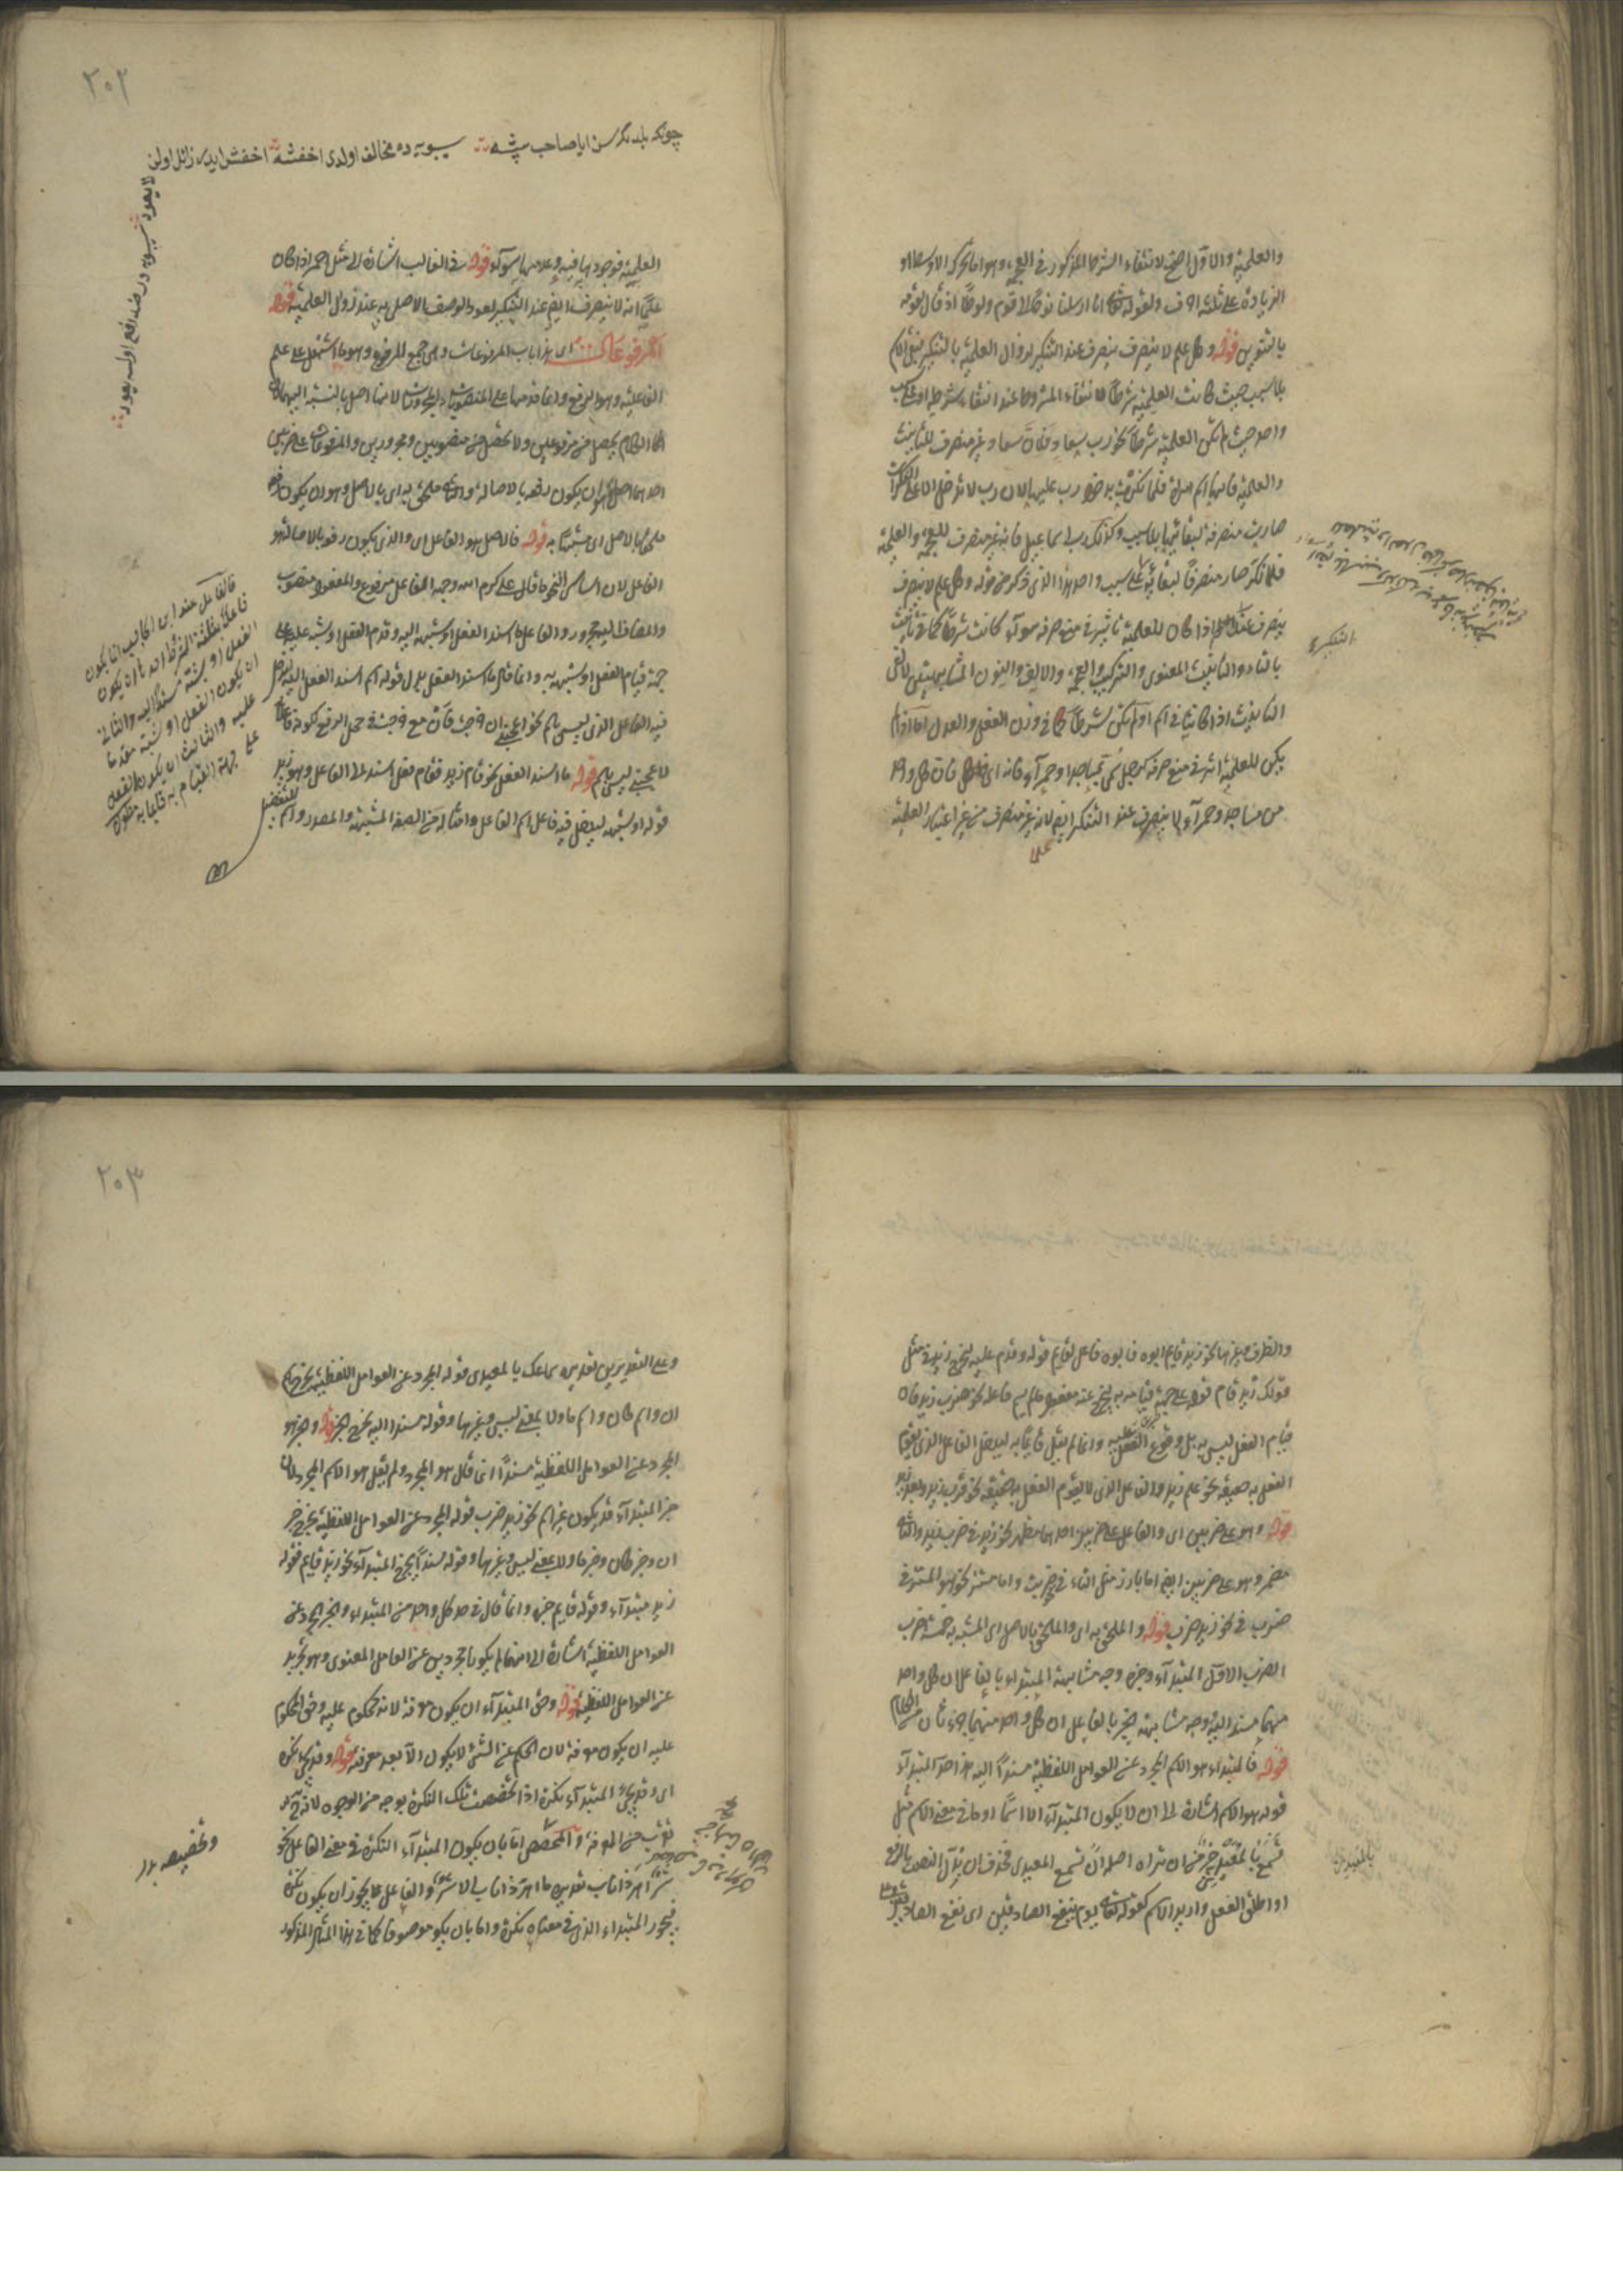 والعلمية والاول اصح لانتفاء الشرط المذكور في العجمة وهو اما تحرك الاوسط او
الزيادة على ثلثة احرف ولقوله تعالى انا ارسلنا نوحا الى قوم ولوطا اذ قال لقومه
بالتنوين قوله وكل علم لا ينصرف ينصرف عند التنكير لزوال العلمية بالتنكير فبقى الاسم
بلا سبب حيث كانت العلمية شرطا لانتفاء المشروط عند انتفاء شرطه او على سبب
واحد حيث لم تكن العلمية شرطا نحو رب سعاد فان سعاد غير منصرف للتأنيث
والعلمية فانها اسم امراة فلما نكرت بدخول رب عليها لان رب لا تدخل الا على النكرات
صارت منصرفة لبقائها بلا سبب وكذلك رب اسماعيل فانه غير منصرف للعجمة والعلمية
فلما نكر صار منصرفا لبقائه على سبب واحد هذا الذي ذكر من قوله وكل علم لا ينصرف
ينصرف عند التنكير اذا كان للعلمية تأثير في منع صرفه سوآء كانت شرطا كما في تأنيث
بالتاء والتأنيث المعنوى والتركيب والعجمة والالف والنون المشابهتين لالفى
التأنيث اذا كانتا في اسم او لم تكن شرطا كما في وزن الفعل والعدل اما اذا لم
يكن للعلمية اثر في منع صرفه كرجل سمى بمساجد او حمرآء فانه اى كل فان كل واحد
من مساجد وحمرآء لا ينصرف عند التنكير ايضا لانه غير منصرف من غير اعتبار العلمية
التنكير
٢٠٢
چونكه بلدنگر سن ايا صاحب پيشه سيبويه ده مخالف اولدى اخفشه اخفش ايدر زائل اولن
لا يعود سيبويه در ضد رافع اولسه يعود
العلمية فوجودها فيه وعدمها سوآء قوله في الغالب اشارة الى مثل احمر اذا كان
علما انه لا ينصرف ايضا عند التنكير لعود الوصف الاصلى به عند زوال العلمية قوله
المرفوعات اى هذا باب المرفوعات وهى جمع المرفوع وهو ما اشتمل على علم
الفاعلية وهو الرفع وانما قدمها على المنصوبات والمجرورات لانها اصل بالنسبة اليهما لان
الكلام يحصل من مرفوعين ولا يحصل من منصوبين ومجرورين والمرفوعات على ضربين
احدهما اصل وهو ان يكون رفعه بالاصالة والثاني ملحق به اى بالاصل وهو ان يكون رفعه
ملحقا بالاصل اى مشبها به قوله فالاصل هو الفاعل اى والذى يكون رفعه بالاصالة هو
الفاعل لان اساس النحو ما قال على كرم الله وجهه الفاعل مرفوع والمفعول منصوب
والمضاف اليه مجرور والفاعل ما اسند الفعل او شبهه اليه وقدم الفعل او شبهه عليه على
جهة قيام الفعل او شبهه به وانما قال ما اسند الفعل بدل قوله اسم اسند الفعل اليه ليدخل
فيه الفاعل الذي ليس باسم نحو اعجبنى ان خرجت فان مع خرجت في محل الرفع لكونه فاعلا
لاعجبنى ليس باسم قوله ما اسند الفعل نحو قام زيد فقام فعل اسند الى الفاعل وهو زيد
قوله او شبهه ليدخل فيه فاعل اسم الفاعل وامثاله من الصفة المشبهة والمصدر واسم التفضيل
فالفاعل عند ابن الحاجب انما يكون
فاعلا بثلثة الشرط احدها ان يكون
الفعل او شبهه مسندا اليه والثانى
ان يكون الفعل او شبهه مقدما
عليه والثالث ان يكون الفعل
على جهة القيام به
والظرف وغيرها نحو زيد قايم ابوه فابوه فاعل لقايم قوله وقدم عليه ليخرج زيد في مثل
قولك زيد قام قوله على جهة قيامه به ليخرج عنه مفعول ما لم يسم فاعله نحو ضرب زيد فان
قيام الفعل ليس به بل وقوع الفعل عليه وانما لم يقل قائما به ليدخل الفاعل الذى يقوم
الفعل به حقيقة نحو علم زيد والفاعل الذى لا يقوم الفعل به حقيقة نحو قرب زيد وبعد زيد
قوله وهو على ضربين اى والفاعل على ضربين احدهما مظهر نحو زيد في ضرب زيد والثانى
مضمر وهو على ضربين ايضا اما بارز مثل التاء في ضربت واما مستتر نحو هو المستتر في
ضرب في نحو زيد ضرب قوله والملحق به اى والملحق بالاصل اى المشبه به خمسة اضرب
الضرب الاول المبتدآء وخبره وجه مشابهة المبتداء بالفاعل ان كل واحد
منهما مسند اليه وجه مشابهة الخبر بالفاعل ان كل واحد منهما جزء ثان من الكلام
قوله فالمبتداء هو الاسم المجرد عن العوامل اللفظية مسندا اليه هذا حد المبتدآء
قوله هو الاسم اشارة الى ان لا يكون المبتدآء الا اسما او ما في معنى الاسم مثل
تسمع بالمعيدى خير من ان تراه اصله ان تسمع المعيدى فحذف ان بدل النصب بالرفع
او اطلق الفعل واريد الاسم كقوله تعالى يوم ينفع الصادقين اى نفع الصادقين
بالمعيدى
٢٠٣
وعلى التقديرين تقديره سماعك بالمعيدى قوله المجرد عن العوامل اللفظية يخرج اسم
ان واسم كان واسم ما ولا بمعنى ليس وغيرها وقوله مسندا اليه يخرج الخبر قوله وخبره هو
المجرد عن العوامل اللفظية مسندا انما قال هو المجرد ولم يقل هو الاسم المجرد لان
خبر المبتدآء قد يكون غير اسم نحو زيد ضرب قوله المجرد عن العوامل اللفظية يخرج خبر
ان وخبر كان وخبر ما ولا بمعنى ليس وغيرها وقوله مسندا يخرج المبتدآء نحو زيد قايم فقوله
زيد مبتدآء وقوله قايم خبره وانما قال في حد كل واحد من المبتداء والخبر المجرد عن
العوامل اللفظية اشارة الى انهما لم يكونا مجردين عن العامل المعنوى وهو تجريد
عن العوامل اللفظية قوله وحق المبتدآء ان يكون معرفة لانه محكوم عليه وحق المحكوم
عليه ان يكون معرفة لان الحكم عن الشئ لا يكون الا بعد معرفته قوله وقد يجئ نكرة
اى وقد يجئ المبتدآء نكرة اذا تخصصت تلك النكرة بوجه من الوجوه لانه ح
تقرب من المعرفة والتخصص اما بان يكون المبتدآء النكرة في معنى الفاعل نحو
شر اهر ذا ناب تقديره ما اهر ذا ناب الا شر والفاعل يجوز ان يكون نكرة
فيجوز المبتداء الذى في معناه نكرة واما بان يكون موصوفا كما في هذا المثال المذكور
وتخصيصه